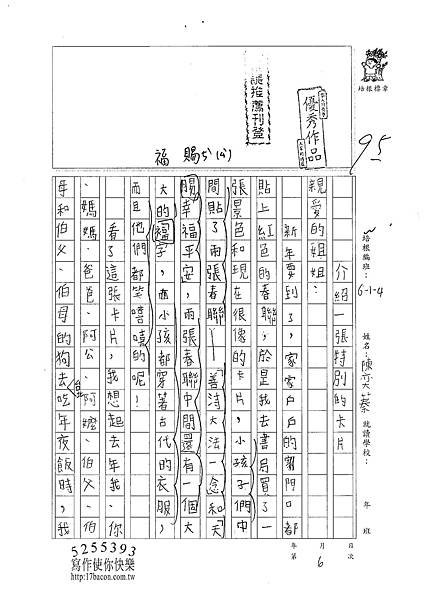 培根標章
認推薦刊登
優秀作品
95
福 賜5'(么)
培根編班：6-1-4
姓名：陳
就讀學校：
年 班
介紹一張特別的卡片
親愛的姐姐：
新年要到了，家家戶戶的門口都
貼上紅色的春聯，於是我去書局買了一
張景色和現在很像的卡片，小孩子們中
間貼了兩張春聯—「善待大法一念和「天
賜幸福平安，兩張春聯中間還有一個大
大的福字，小孩都穿著古代的衣服，
而且他們都笑嘻嘻的呢！
看了這張卡片，我想起去年我、你
、媽媽、爸爸、阿公、阿嬤、伯父、伯
母和伯父、伯母的狗去台吃年夜飯時，我
次 日
月 6
年 第
5255393
寫作使你快樂
http://17bacon.com.tw